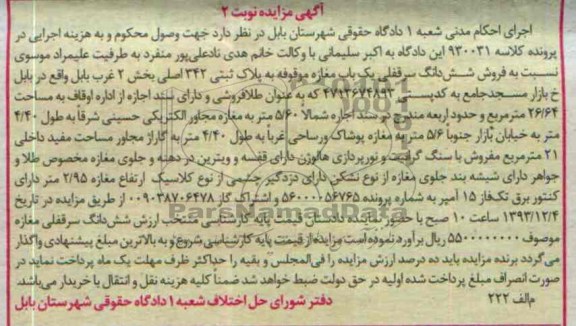 آگهی مزایده نوبت ۲
اجرای احکام مدنی شعبه ۱ دادگاه حقوقی شهرستان بابل در نظر دارد جهت وصول محکوم و به هزینه اجرایی در
پرونده کلاسه ۹۳۰۰۳۱ این دادگاه به اکبر سلیمانی با وکالت خانم هدی نادعلی‌پور منفرد به طرفیت علیمراد موسوی
نسبت به فروش شش‌دانگ سرقفلی یک باب مغازه موقوفه به پلاک ثبتی ۳۴۲ اصلی بخش ۲ غرب بابل واقع در بابل
خ بازار مسجدجامع به کدپستی ۴۷۱۳۶۷۴۸۹۳ که به عنوان طلافروشی و دارای سند اجازه از اداره اوقاف به مساحت
۲۶/۶۴ مترمربع و حدود اربعه مندرج در سند اجاره شمالا ۵/۶۰ متر به مغازه مجاور الکتریکی حسینی شرقاً به طول ۴/۴۰
متر به خیابان بازار جنوبا ۵/۶ متر به مغازه پوشاک ورساچی غرباً به طول ۴/۴۰ متر به گاراژ مجاور مساحت مفید داخلی
۲۱ مترمربع مفروش با سنگ گرانیت و نورپردازی هالوژن دارای قفسه و ویترین در دهنه و جلوی مغازه مخصوص طلا و
جواهر دارای شیشه بند جلوی مغازه از نوع نشکن دارای دزدگیر چشمی از نوع کلاسیک ارتفاع مغازه ۲/۹۵ متر دارای
کنتور برق تک‌فاز ۱۵ آمپر به شماره پرونده ۵۶۰۰۰۰۵۶۷۶۵ و اشتراک گاز ۰۰۹۰۳۸۷۰۶۴۷۸ از طریق مزایده در تاریخ
۱۳۹۳/۱۲/۴ ساعت ۱۰ صبح با حضور کارشناسی منتخب ارزش شش‌دانگ سرقفلی مغازه
موصوف ۵۵۰۰۰۰۰۰۰۰ ریال برآورد نموده است مزایده از قیمت پایه کارشناسی شروع و به بالاترین مبلغ پیشنهادی واگذار
می‌گردد برنده مزایده باید ده درصد ارزش مزایده را فی‌المجلس و بقیه را حداکثر ظرف مهلت یک ماه پرداخت نماید در
صورت انصراف مبلغ پرداخت شده اولیه در حق دولت ضبط خواهد شد ضمناً کلیه هزینه نقل و انتقال با خریدار می‌باشد.
م‌الف ۲۲۲ دفتر شورای حل اختلاف شعبه ۱ دادگاه حقوقی شهرستان بابل
ParsNamadData